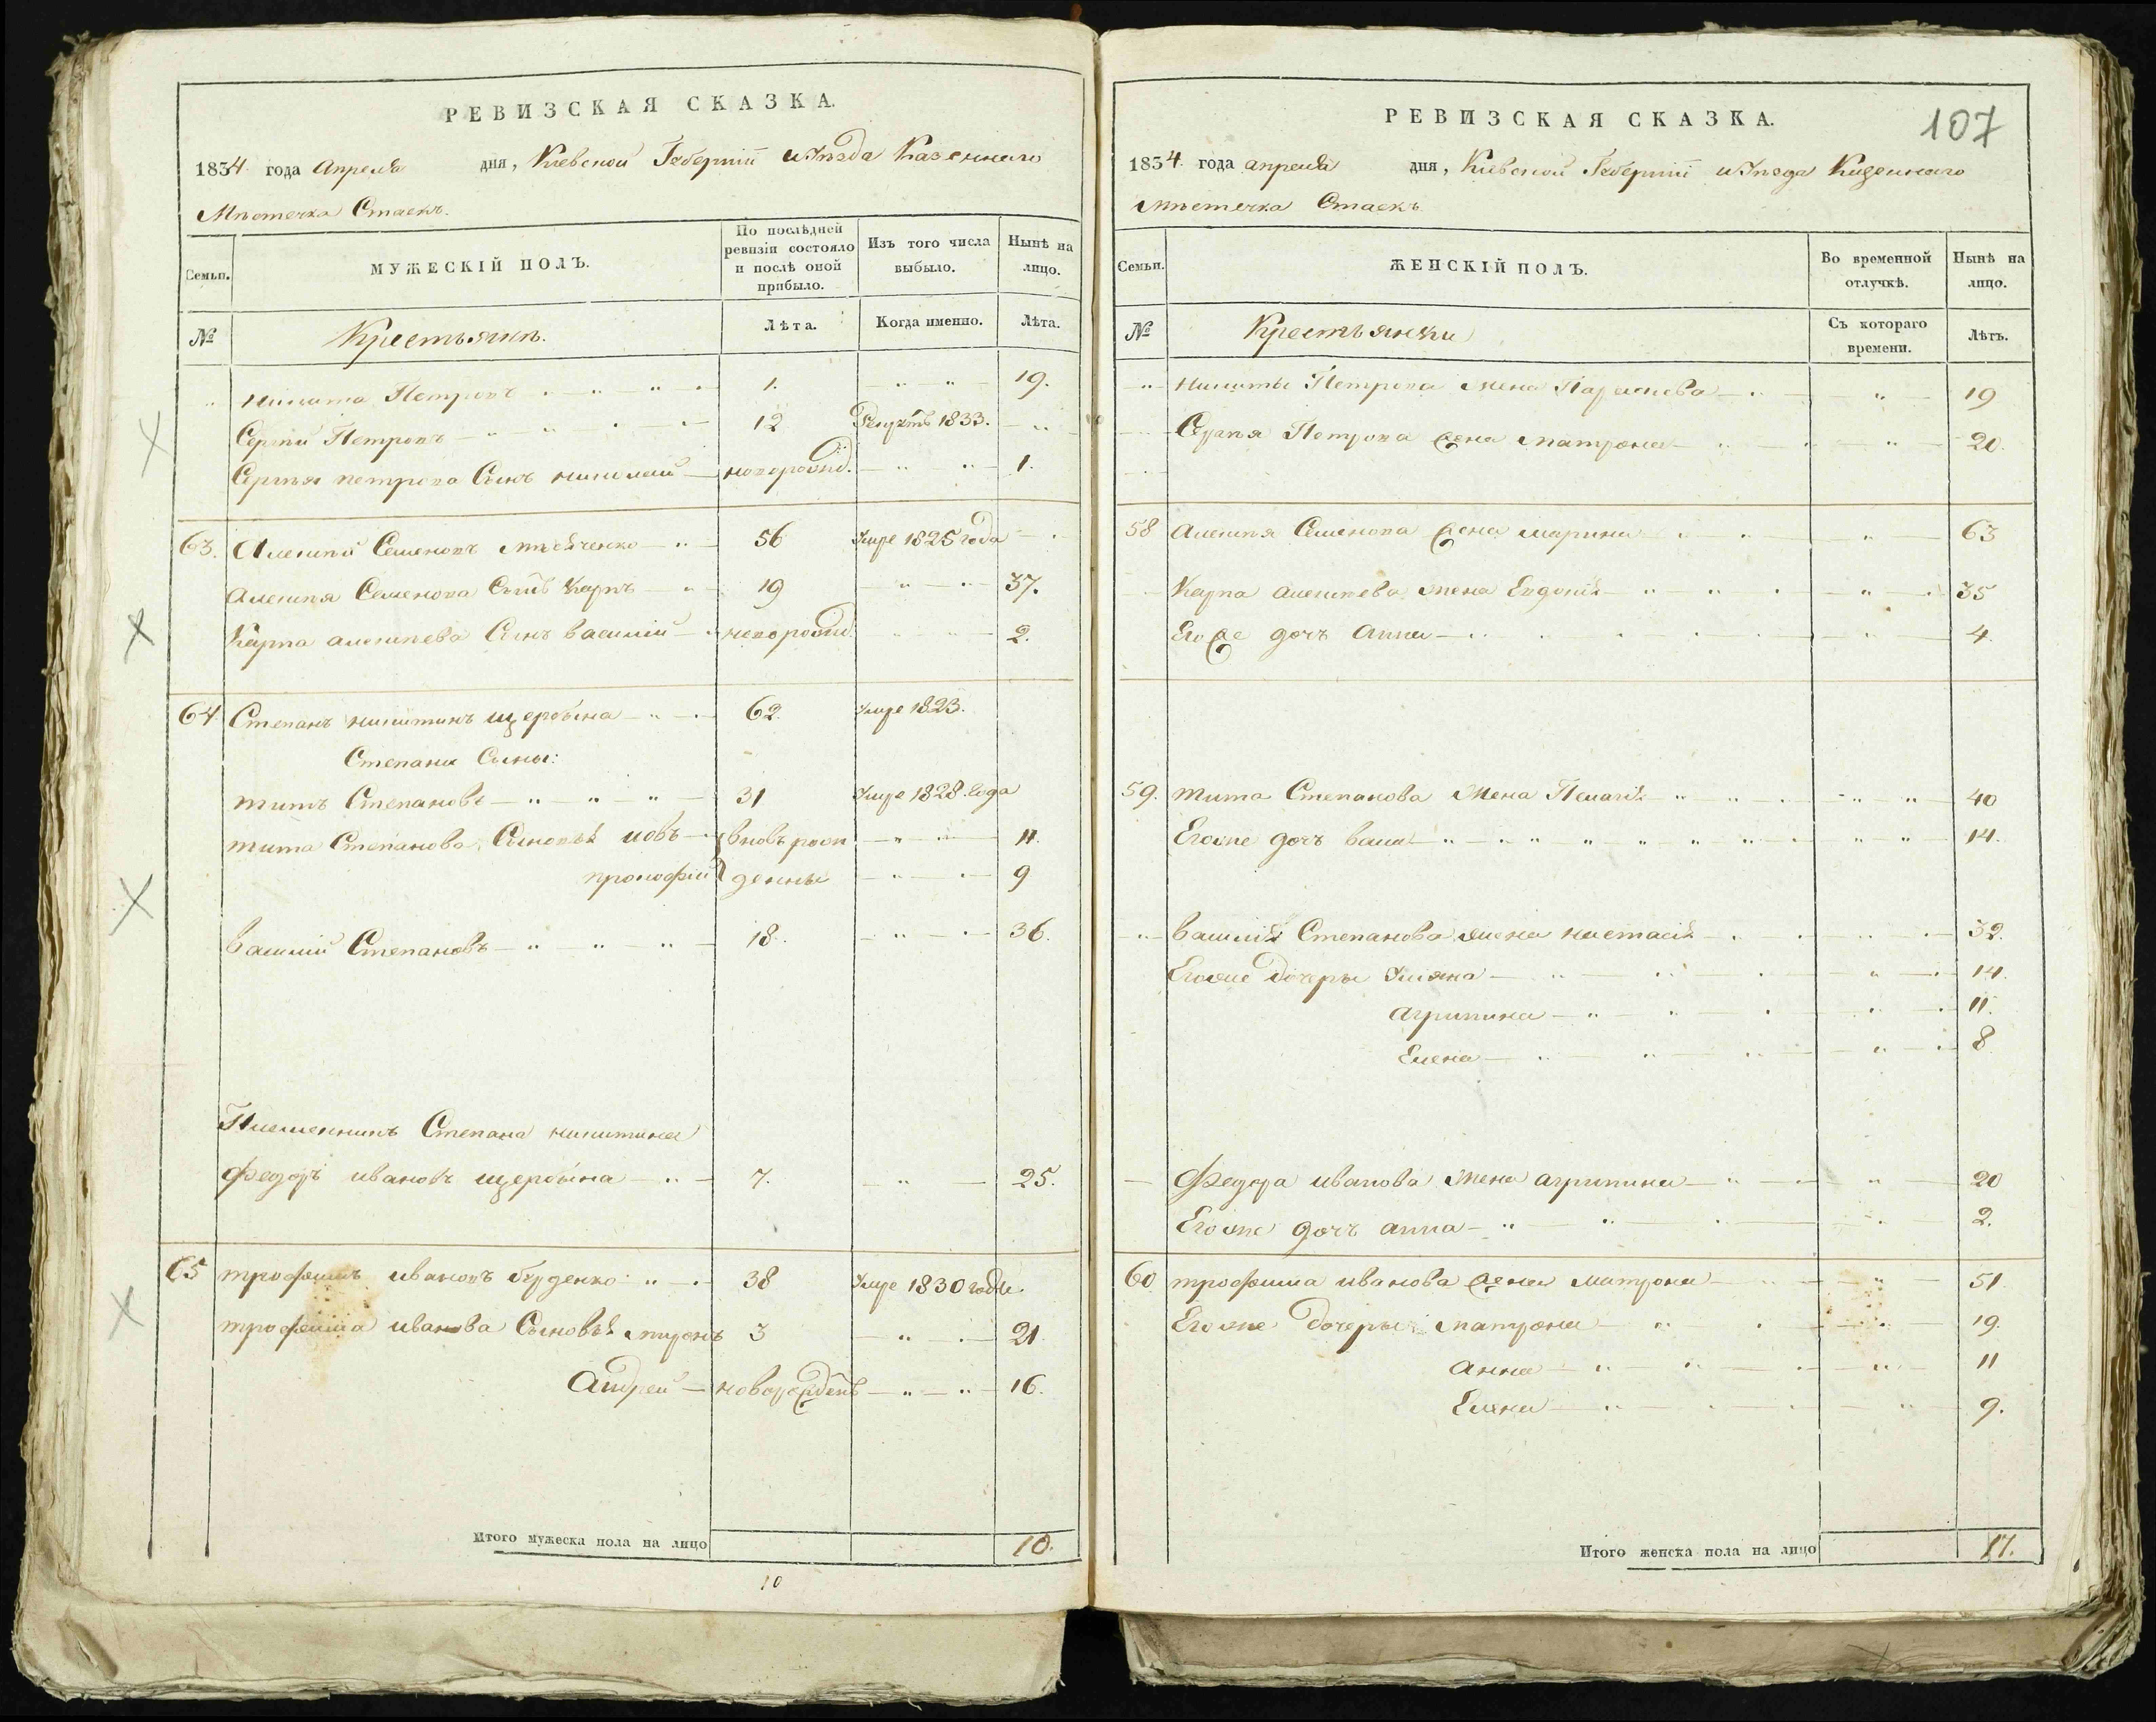 РЕВИЗСКАЯ СКАЗКА.
1834 года Апреля дня, Кіевской Губерніи и Уѣзда Казеннаго
Мѣстечка Стаекъ.
Семьи.
МУЖЕСКІЙ ПОЛЪ.
По послѣдней ревизіи состояло и послѣ оной прибыло.
Изъ того числа выбыло.
Нынѣ на лицо.
№
Крестьяне.
Лѣта.
Когда именно.
Лѣта.
никита Петровъ 1. 19.
Сергѣй Петровъ 12 Рекрутъ 1833.
Сергѣя петрова Сынъ николайноворожд. 1.
63. Алексѣй Семеновъ 56 Умре 1825 года
Алексѣя Семенова Сынъ Карпъ 19 37.
Карпа алексѣева Сынъ василій новорожд. 2.
64 Степанъ никитинъ щербина 62. Умре 1823.
Степана Сыны:
титъ Степановъ 31 Умре 1828 года
тита Степанова Сыновья иовъ вновь рож 11.
прокофій денны 9
василій Степановъ 18. 36.
Племенникъ Степана никитина
федоръ ивановъ щербина 7. 25.
65 трофимъ ивановъ берденко 38 Умре 1830 года.
трофима иванова Сыновья миронъ 3 21
Андрей новорожденъ 16.
Итого мужеска пола на лицо 10.
10
107
РЕВИЗСКАЯ СКАЗКА.
1834 года апреля дня, Кіевской Губерніи и Уѣзда Казеннаго
Мѣстечка Стаекъ
Семьи.
ЖЕНСКІЙ ПОЛЪ.
Во временной отлучкѣ.
Нынѣ на лицо.
№
Крестьянки
Съ котораго времени.
Лѣтъ.
никиты Петрова жена Параскева 19
Сергѣя Петрова жена матрона 20.
58 Алексѣя Семенова жена марина 63
Карпа алексѣева жена Евдокія 35
Его же дочъ Анна 4.
59. тита Степанова жена Пелагія 40
Его же дочъ 14.
василія Степанова жена настасія 32.
Его же Дочеры Уліяна 14.
агрипина 11.
Елена 8
федора иванова жена агрипина 20
Его же дочъ анна 2.
60 трофима иванова жена матрона 51.
Его же Дочеры матрона 19.
анна 11
Елена 9.
Итого женска пола на лицо 17.